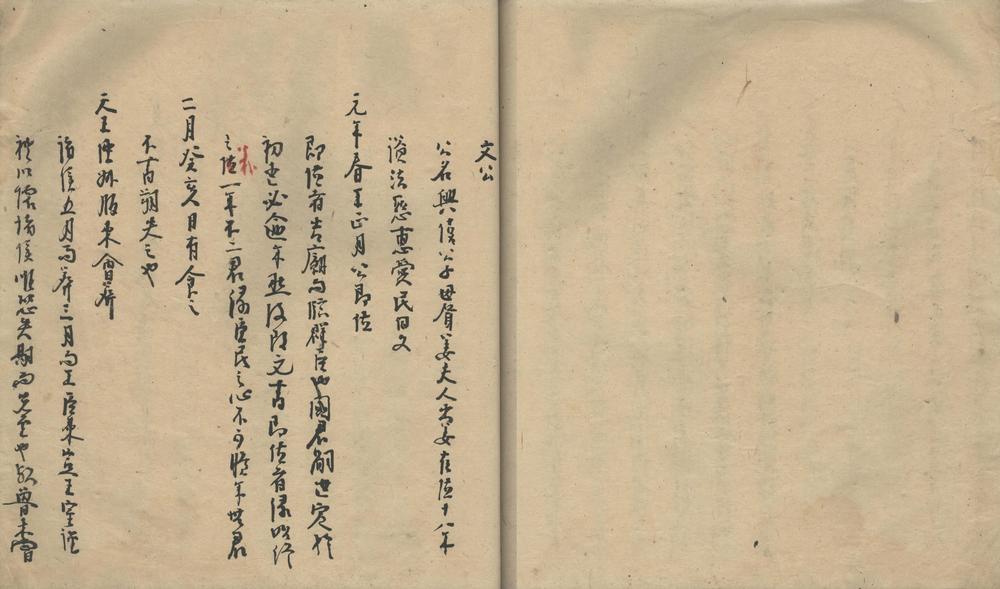 文公
公名興僖公子母聲姜夫人出女在位十八年
諡法慈惠愛民曰文
元年春王正月公即位
即位者告廟而臨群臣也國君嗣世定於
初喪必逾年然後改元書即位者緣始終
之義一年不二君緣臣民之心不可曠年無君
二月癸亥日有食之
不書朔失之也
天王使叔服來會葬
諸侯五月而葬三月而王臣來 王室
禮以懷諸侯惟恐失 而先 也 魯 會